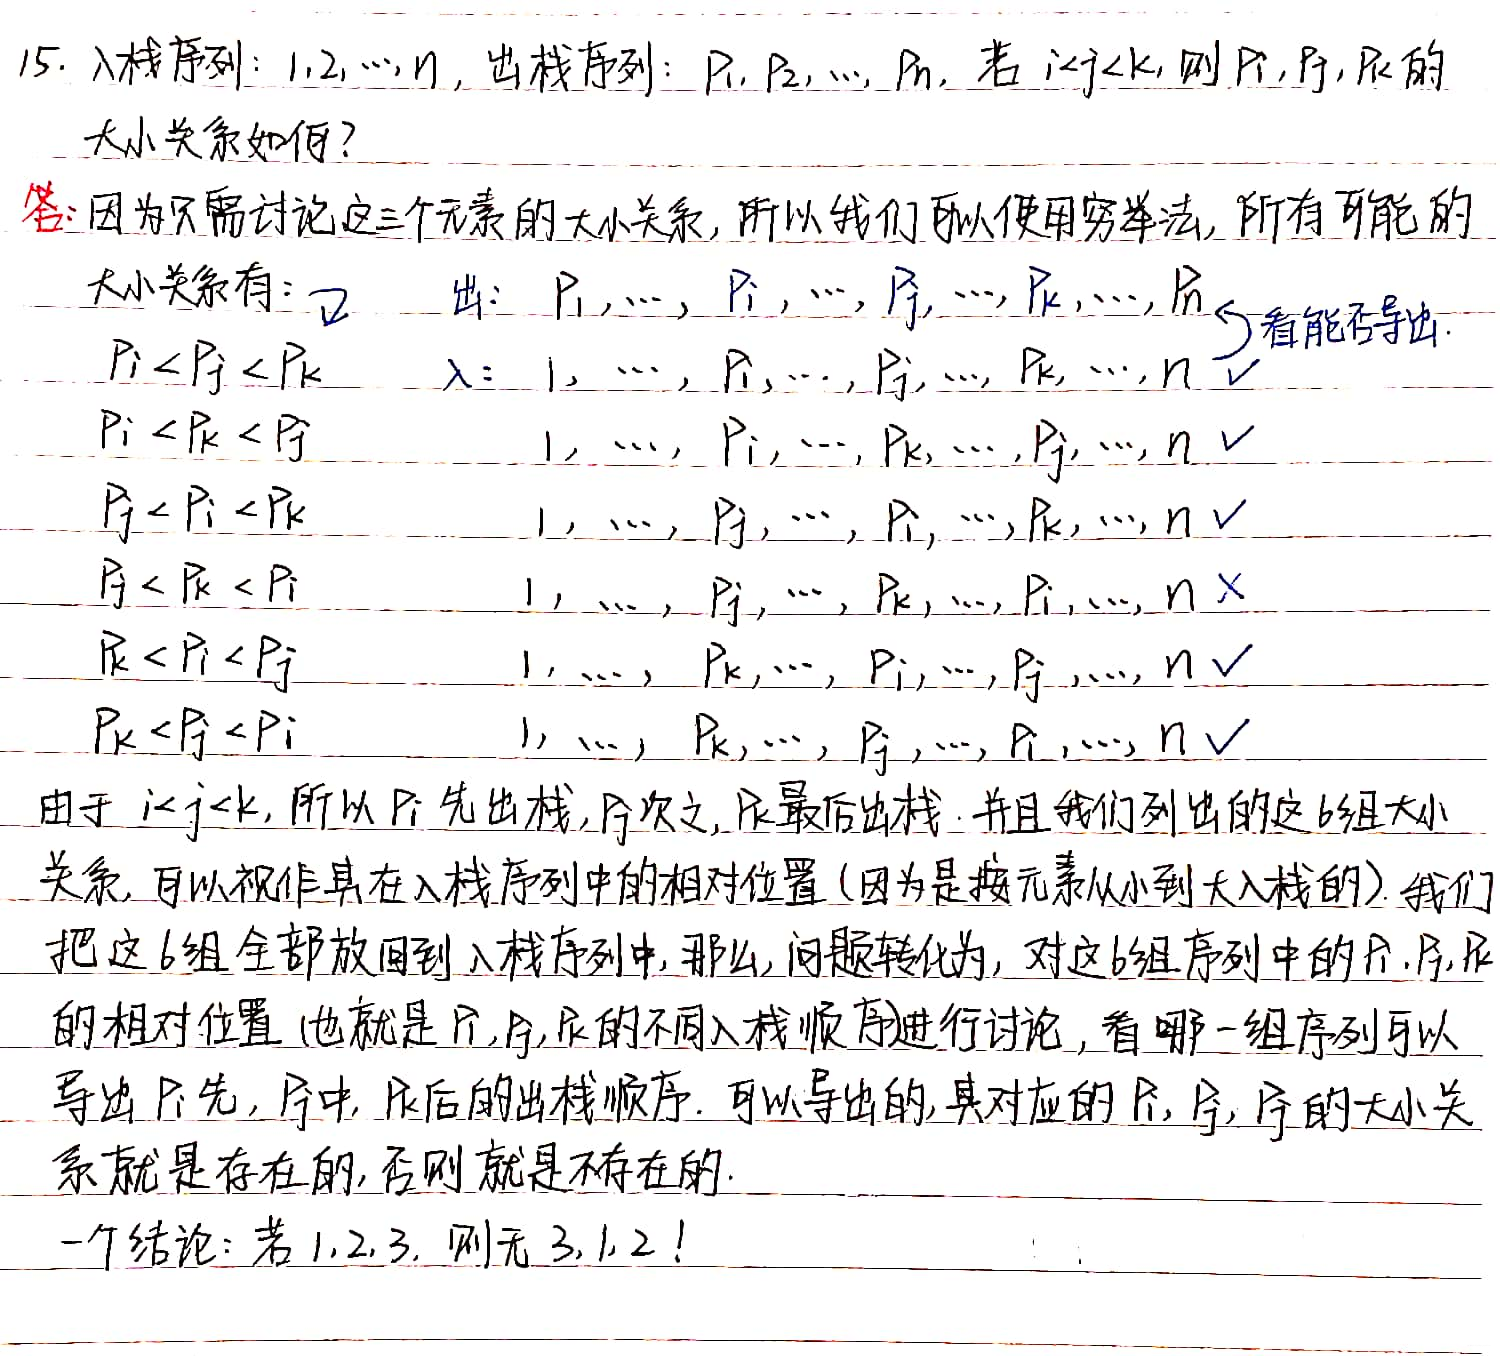 15. 入栈序列: 1,2,…,n, 出栈序列: P1, P2, …, Pn, 若 i<j<k, 则 Pi, Pj, Pk 的
大小关系如何?
答: 因为只需讨论这三个元素的大小关系, 所以我们可以使用穷举法, 所有可能的
大小关系有: 出: P1, …, Pi, …, Pj, …, Pk, …, Pn
看能否导出.
Pi < Pj < Pk 入: 1, …, Pi, …, Pj, …, Pk, …, n ✓
Pi < Pk < Pj 1, …, Pi, …, Pk, …, Pj, …, n ✓
Pj < Pi < Pk 1, …, Pj, …, Pi, …, Pk, …, n ✓
Pj < Pk < Pi 1, …, Pj, …, Pk, …, Pi, …, n ×
Pk < Pi < Pj 1, …, Pk, …, Pi, …, Pj, …, n ✓
Pk < Pj < Pi 1, …, Pk, …, Pj, …, Pi, …, n ✓
由于 i<j<k, 所以 Pi 先出栈, Pj 次之, Pk 最后出栈. 并且我们列出的这6组大小
关系, 可以视作其在入栈序列中的相对位置 (因为是按元素从小到大入栈的). 我们
把这6组全部放回到入栈序列中, 那么, 问题转化为, 对这6组序列中的 Pi, Pj, Pk
的相对位置 (也就是 Pi, Pj, Pk 的不同入栈顺序) 进行讨论, 看哪一组序列可以
导出 Pi 先, Pj 中, Pk 后的出栈顺序. 可以导出的, 其对应的 Pi, Pj, Pj 的大小关
系就是存在的, 否则就是不存在的.
一个结论: 若 1,2,3, 则无 3,1,2!